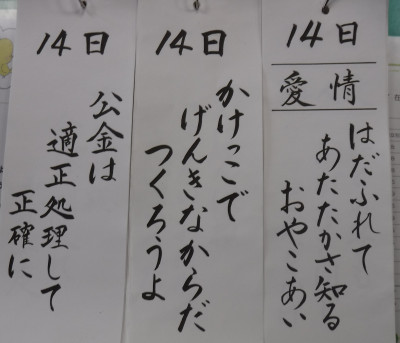 14日
愛情
はだふれて
あたたかさ知る
おやこあい
14日
かけっこで
げんきなからだ
つくろうよ
14日
公金は
適正処理して
正確に